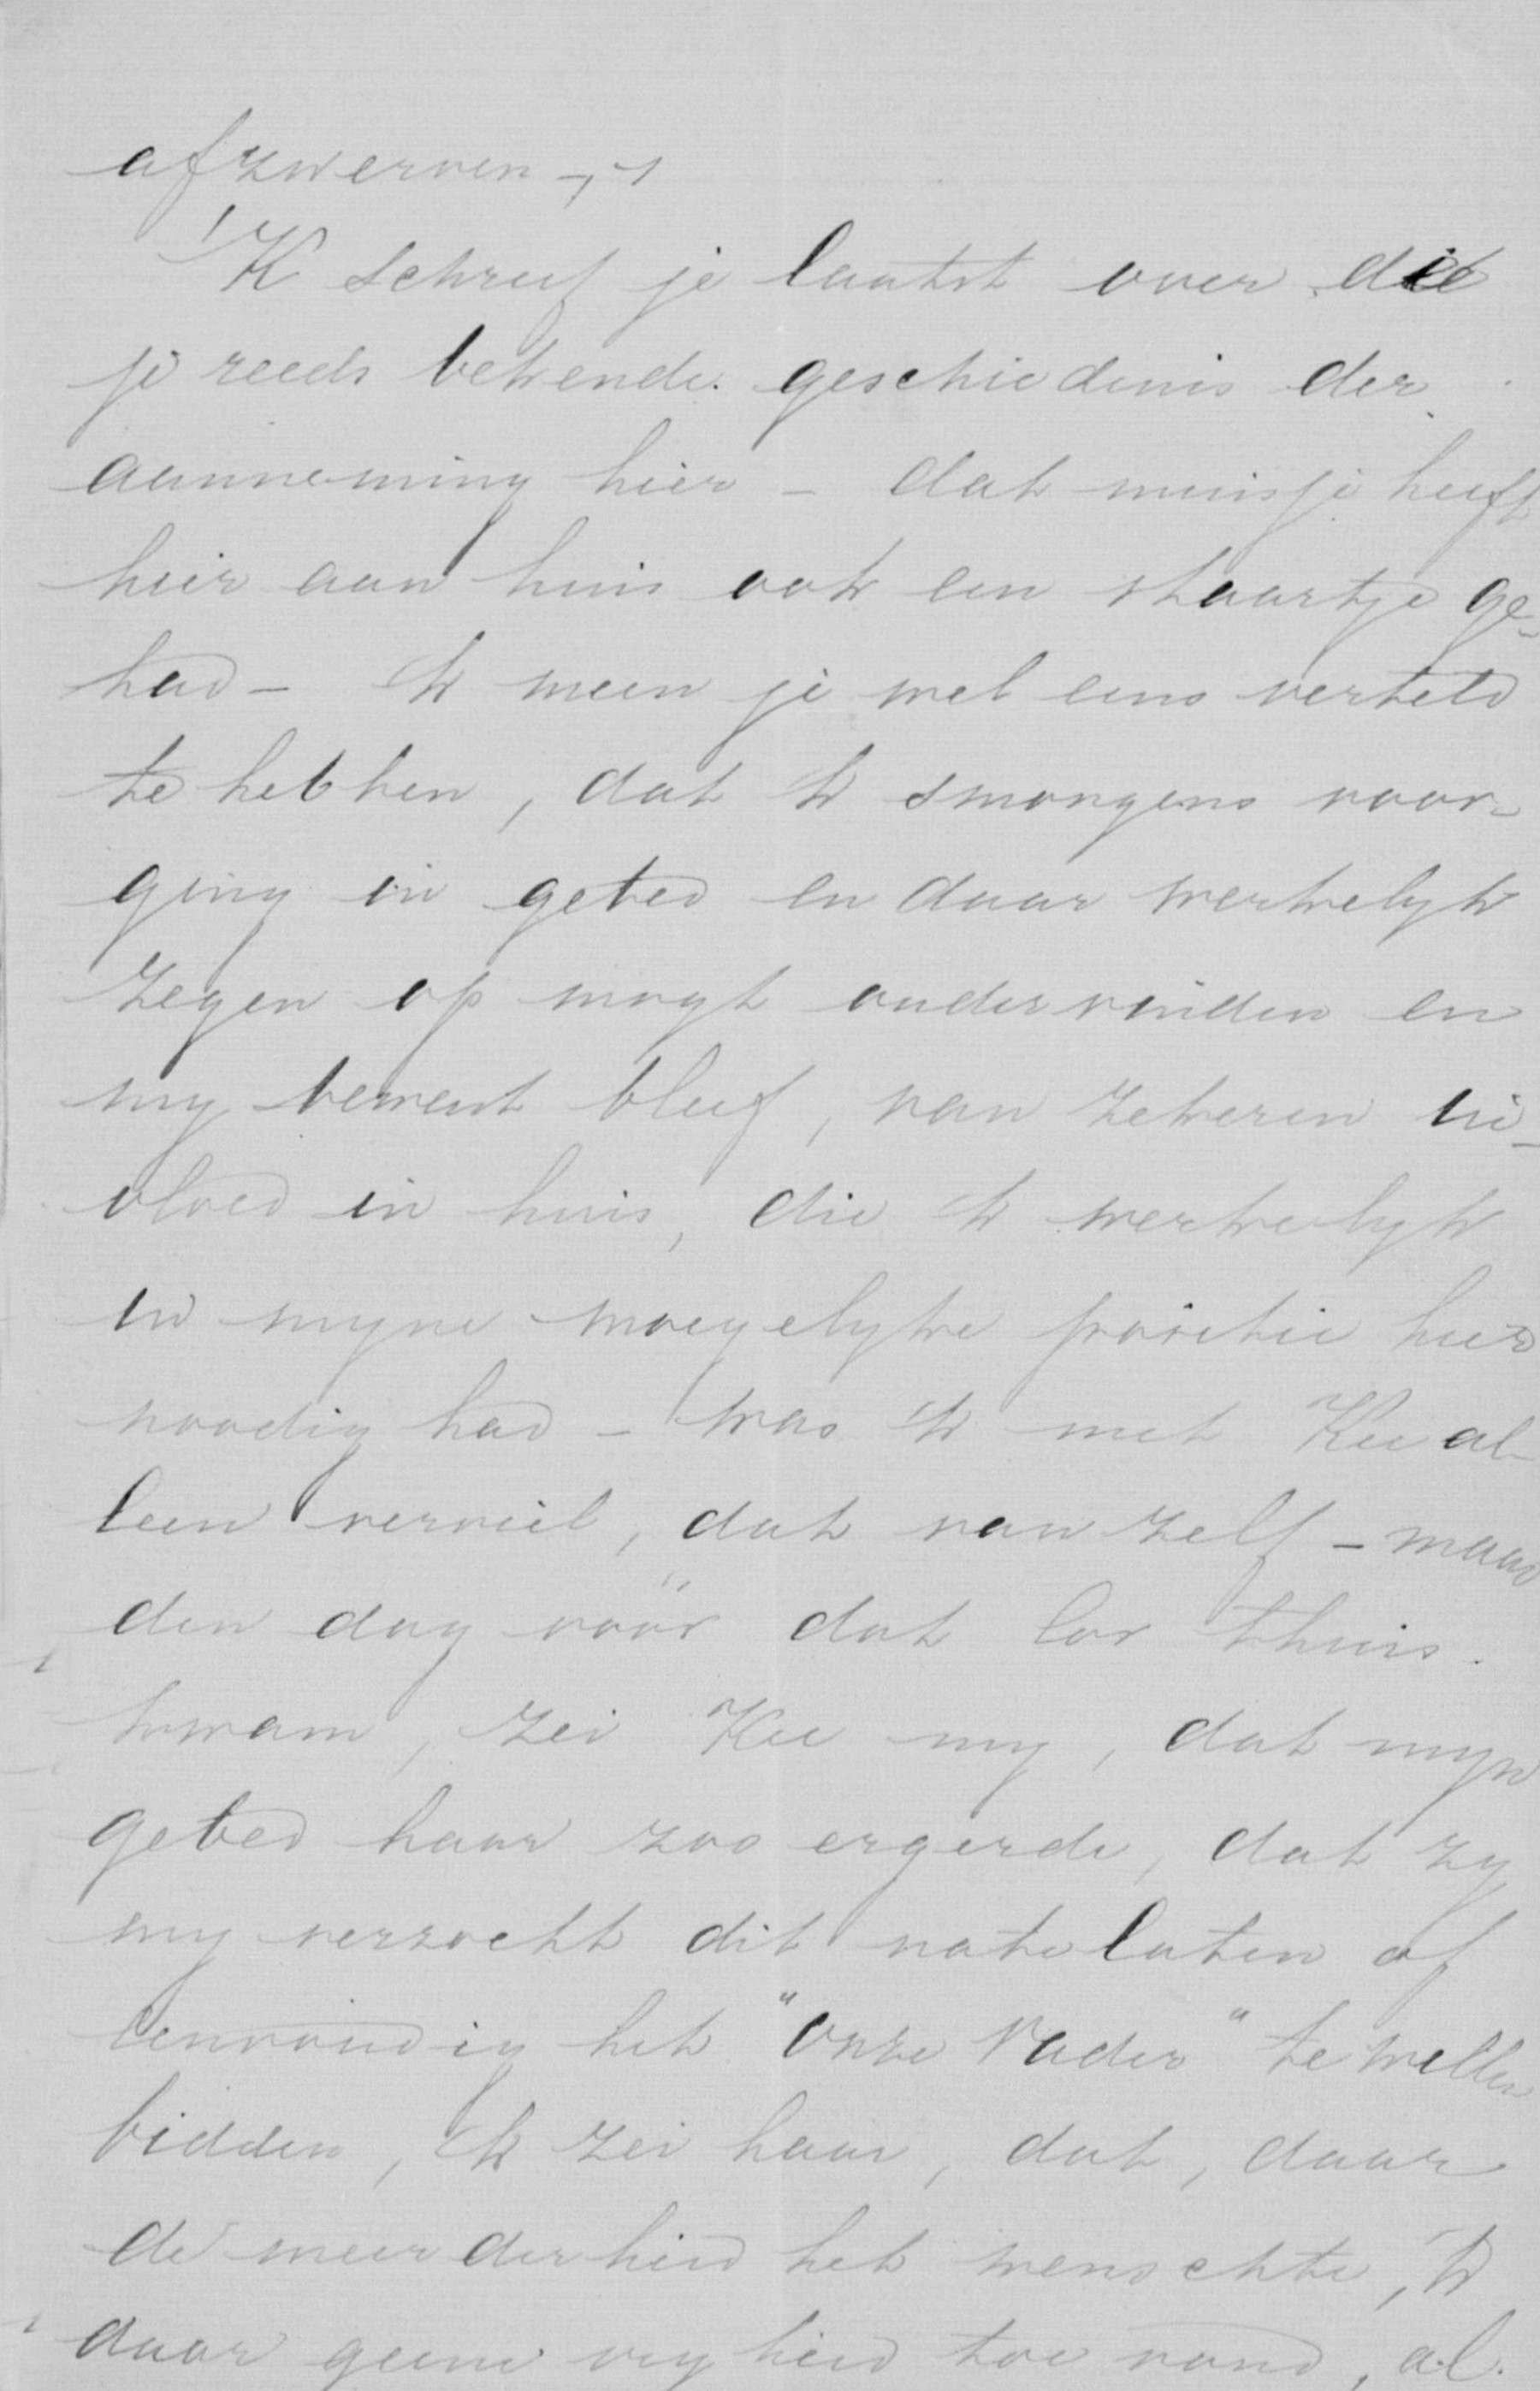 afzwerven -,-
'K schreef je laatst over die
je reeds bekende geschiedenis der
aanneming hier - dat muisje heeft
hier aan huis ook een staartje ge-
had - Ik meen je wel eens verteld
te hebben, dat ik smorgens voor-
ging in gebed en daar werkelyk
zegen op mogt ondervinden en
my bewust bleef, van zekeren in-
vloed in huis, die ik werkelyk
in myne moeyelyke positie hier
noodig had - was ik met Kee al-
leen verviel, dat van zelf - maar
den dag vóór dat Cor thuis
kwam, zei Kee my, dat myn
gebed haar zoo ergerde, dat zy
my verzocht dit natelaten of
eenvoudig het "Onze Vader" te willen
bidden, Ik zei haar, dat, daar
de meerderheid het wenschte, ik
daar geene vryheid toe vond, al